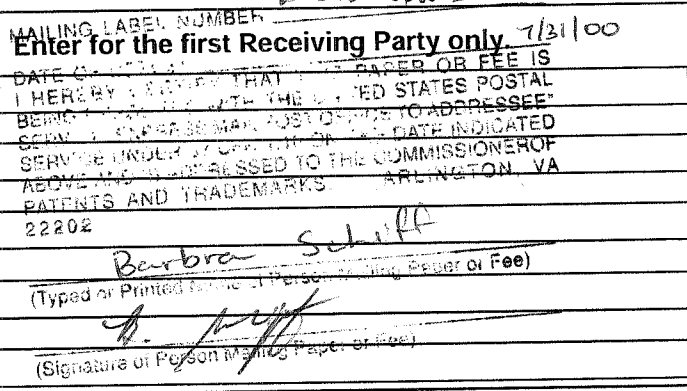 MAILING LABEL NUMBER
Enter for the first Receiving Party only. 7/31/00
DATE PAPER OR FEE IS
I HEREBY THAT ED STATES POSTAL
BEING WITH THE POST OFFICE TO ADDRESSEE"
SERVICE UNDER DATE INDICATED
ABOVE AND ADDRESSED TO THE COMMISSIONER OF
PATENTS AND TRADEMARKS. ARLINGTON, VA
22202
Barbra Schiff
(Typed or Printed Name of Person Mailing Paper or Fee)
B.
(Signature of Person Mailing Paper or Fee)